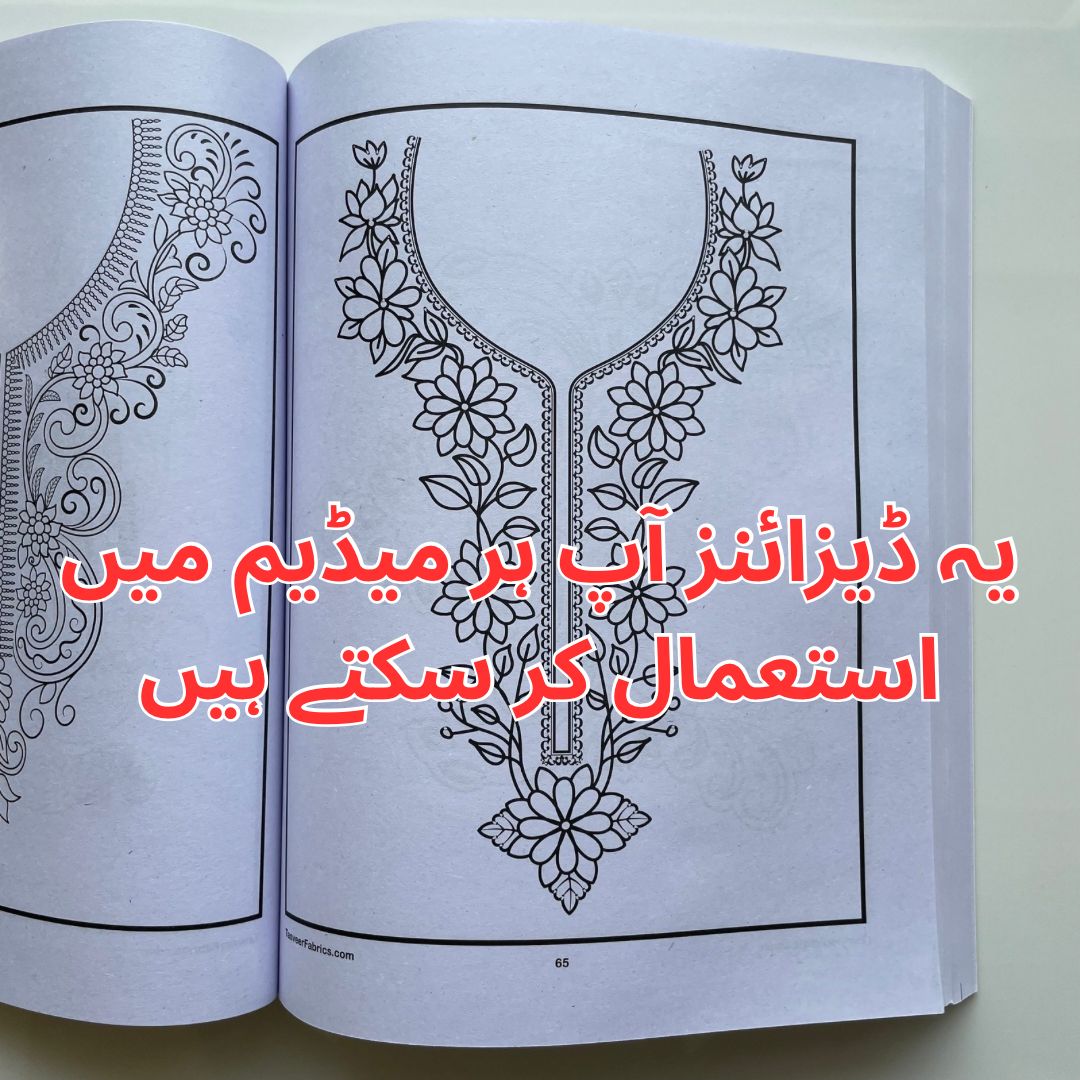 یہ ڈیزائنز آپ ہر میڈیم میں
استعمال کر سکتے ہیں
TasveerFabrics.com
65